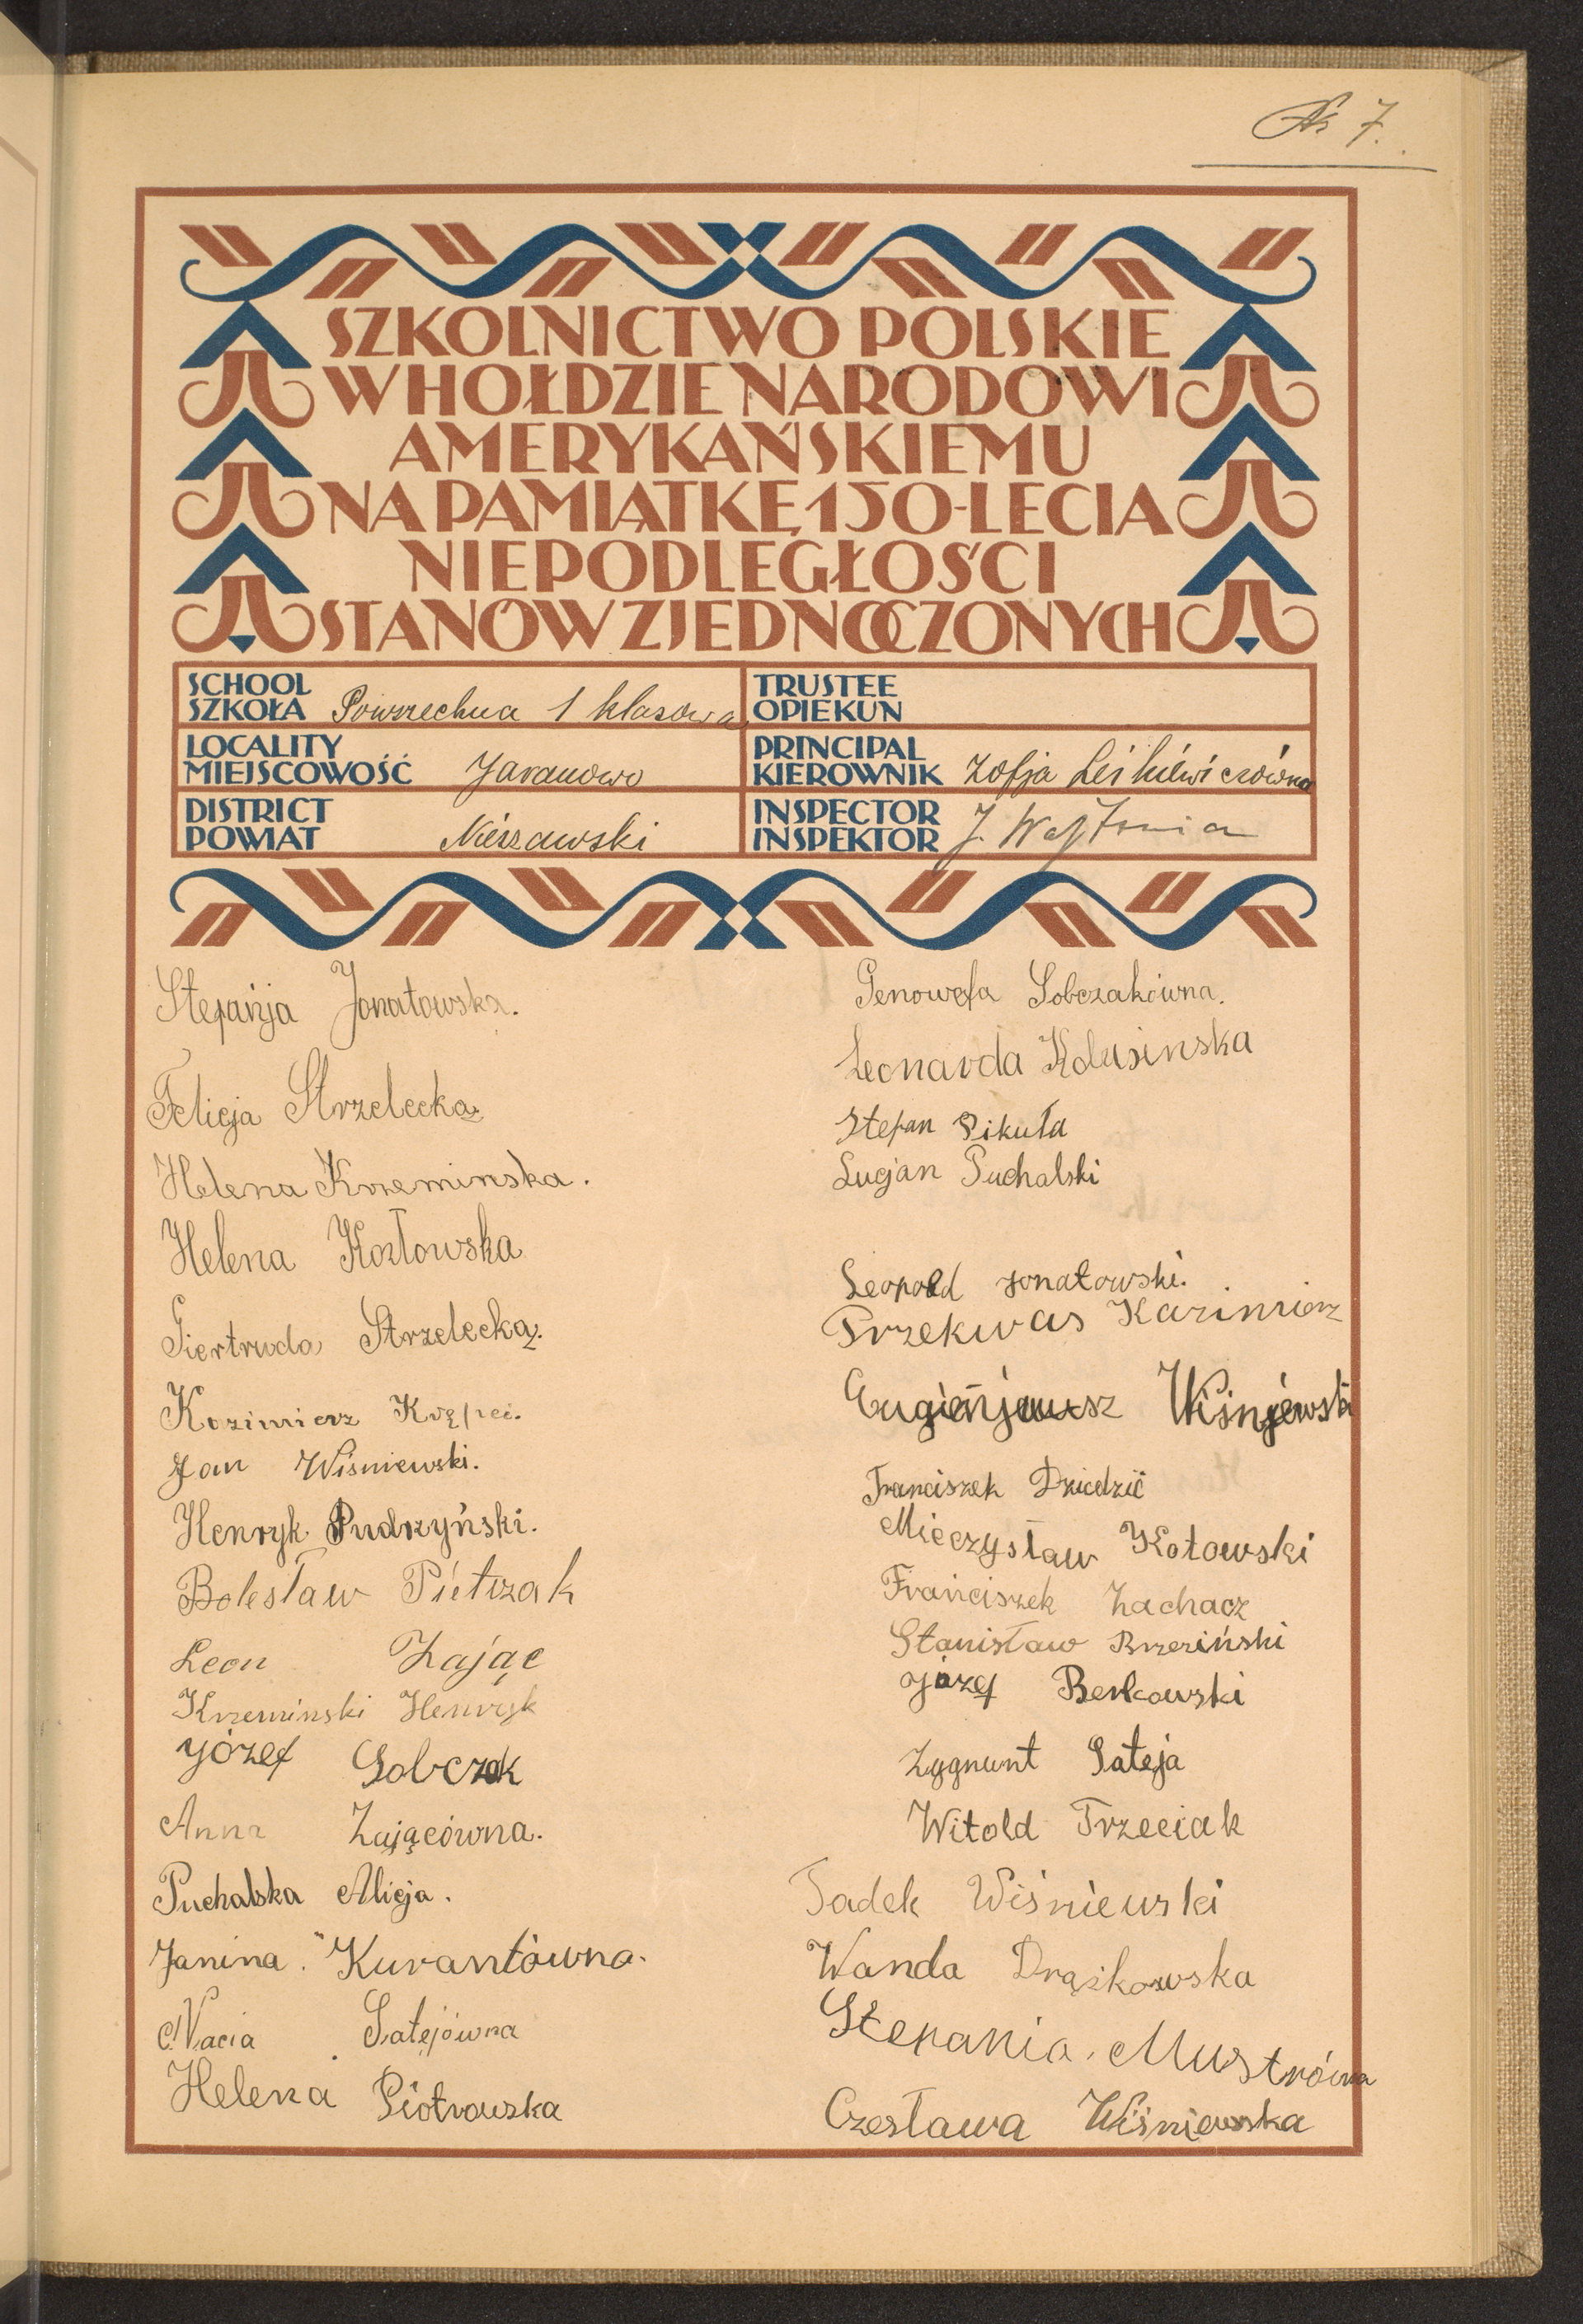 № 7.
SZKOLNICTWO POLSKIE
W HOŁDZIE NARODOWI
AMERYKAŃSKIEMU
NA PAMIĄTKĘ 150-LECIA
NIEPODLEGŁOŚCI
STANÓW ZJEDNOCZONYCH
SCHOOL
SZKOŁA Powszechna 1 klasowa
TRUSTEE
OPIEKUN
LOCALITY
MIEJSCOWOŚĆ Jaranowo
PRINCIPAL
KIEROWNIK Zofja Leśkiewiczówna
DISTRICT
POWIAT Nieszawski
INSPECTOR
INSPEKTOR J.
Stefańja Jonatowska.
Felicja Strzelecka
Helena Krzeminska.
Helena Kozłowska
Giertruda Strzelecka.
Kazimierz
Jan Wiśniewski.
Henryk Pudzyński.
Bolesław Pietrzak
Leon Zając
Krzeminski Henryk
Józef Sobczak
Anna Zającówna.
Puchalska Alicja.
Janina. Kurantówna.
Nacia Satejówna
Helena Piotrowska
Genowefa Sobczakówna.
Leonarda Kolusinska
Stefan Pikuła
Lucjan Puchalski
Leopold Jonatowski.
Przekwas Kazimierz
Eugieńjusz Wiśnjewski
Franciszek Dziedzic
Mieczysław Kotowski
Frańciszek Zachacz
Stanisław Brzeziński
Józef Berkowski
Zygmunt Sateja
Witold Trzeciak
Tadek Wiśniewski
Wanda Drążkowska
Stefania. Mustrówna
Czesława Wiśniewska